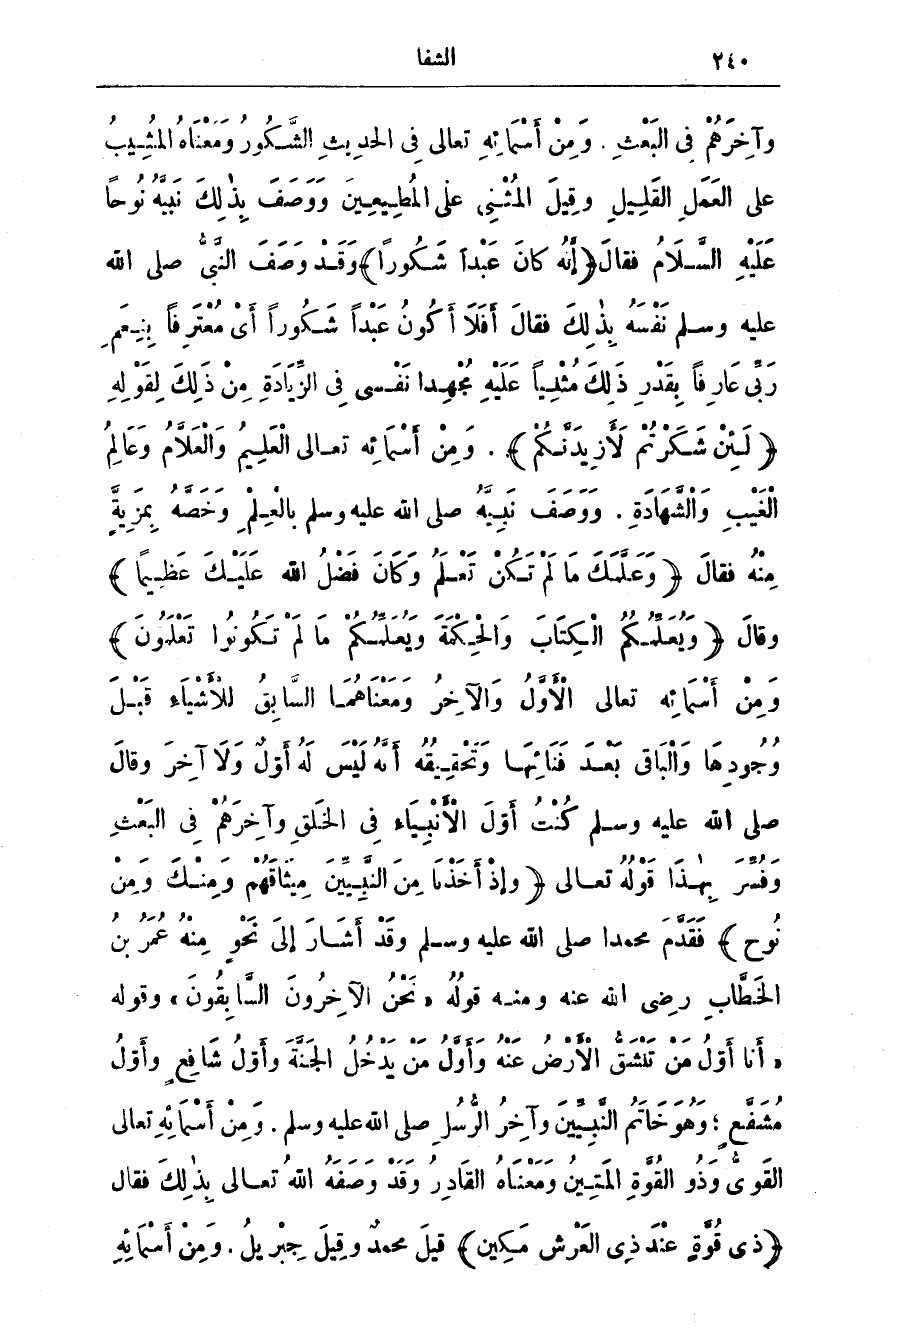 ٢٤٠ الشفا
وآخِرَهُمْ فى البَعْثِ . وَمِنْ أَسْمَائِهِ تعالى فى الحديثِ الشَّكُورُ وَمَعْنَاهُ المُثِيبُ
على العَمَلِ القَلِيلِ وقِيلَ المُثْنِى على المُطِيعِينَ وَوَصَفَ بِذٰلِكَ نَبِيَّهُ نُوحاً
عَلَيْهِ السَّلَامُ فقالَ ﴿إِنَّهُ كانَ عَبْداً شَكُوراً﴾ وَقَدْ وصَفَ النَّبِىُّ صلى الله
عليه وسلم نَفْسَهُ بِذٰلِكَ فقالَ أَفَلَا أَكُونُ عَبْداً شَكُوراً أَىْ مُعْتَرِفاً بِنِعَمِ
رَبِّى عَارِفاً بِقَدْرِ ذَلِكَ مُثْنِياً عَلَيْهِ مُجْهِدا نَفْسى فى الزِّيَادَةِ مِنْ ذَلِكَ لِقَوْلِهِ
﴿ لَئِنْ شَكَرْتُمْ لَأَزِيدَنَّكُمْ ﴾ . وَمِنْ أَسْمَائِه تعالى الْعَلِيمُ وَالْعَلَّامُ وَعَالِمُ
الْغَيْبِ وَالشَّهَادَةِ . وَوَصَفَ نَبِيَّهُ صلى الله عليه وسلم بالْعِلْمِ وَخَصَّهُ بِمَزِيَّةٍ
مِنْهُ فقالَ ﴿ وَعَلَّمَكَ مَا لَمْ تَكُنْ تَعْلَمُ وَكَانَ فَضْلُ الله عَلَيْكَ عَظِيماً ﴾
وقالَ ﴿ وَيُعَلِّمُكُمُ الْكِتَابَ وَالْحِكْمَةَ وَيُعَلِّمُكُمْ مَا لَمْ تَكُونُوا تَعْلَمُونَ ﴾
وَمِنْ أَسْمَائِه تعالى الْأَوَّلُ وَالآخِرُ وَمَعْنَاهُمَا السَّابِقُ لِلأَشْيَاءِ قَبْلَ
وُجُودِهَا وَالْبَاقِى بَعْدَ فَنَائِهَا وَتَحْقِيقُهُ أَنَّهُ لَيْسَ لَهُ أَوَّلٌ وَلَا آخِرَ وقالَ
صلى الله عليه وسلم كُنْتُ أَوّلَ الأَنْبِيَاءِ فى الخَلْقِ وآخِرَهُمْ فى البَعْثِ
وَفُسِّرَ بِهٰذَا قَوْلُهُ تعالى ﴿ وإِذْ أَخَذْنَا مِنَ النَّبِيِّينَ مِيثَاقَهُمْ وَمِنْكَ وَمِنْ
نُوحٍ ﴾ فَقَدَّمَ محمدا صلى الله عليه وسلم وقَدْ أَشَارَ إلىَ نَحْوٍ مِنْهُ عُمَرُ بن
الخَطَّابِ رضى الله عنه ومنه قولُهُ « نَحْنُ الآخِرُونَ السَّابِقُونَ » وقوله
« أَنا أَوّلُ مَنْ تَنْشَقُّ الأَرْضُ عَنْهُ وَأَوَّلُ مَنْ يَدْخُلُ الجَنَّةَ وأَوّلُ شَافِعٍ وأَوّلُ
مُشَفَّعٍ ؛ وَهُوَ خَاتَمُ النَّبِيِّينَ وآخِرُ الرُّسُلِ صلى الله عليه وسلم . وَمِنْ أَسْمَائِهِ تعالى
القَوِىُّ وَذُو القُوَّةِ المَتِينُ وَمَعْنَاهُ القَادِرُ وَقَدْ وَصَفَهُ اللهُ تعالى بِذٰلِكَ فقال
﴿ ذى قُوَّةٍ عِنْدَ ذِى العَرْشِ مَكِينٍ ﴾ قيلَ محمدٌ وقِيلَ جِبْرِيلُ . وَمِنْ أَسْمَائِهِ